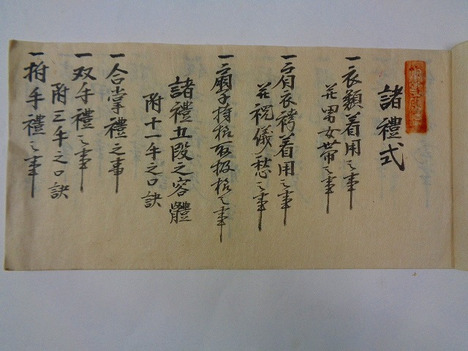 諸禮式
一衣類着用之事
并男女帯之事
一肩衣袴着用之事
并祝儀愁之事
一扇子持様取扱様之事
諸禮五段之容體
附十一手之口訣
一合掌禮之事
一双手禮之事
附三手之口訣
一拊手禮之事